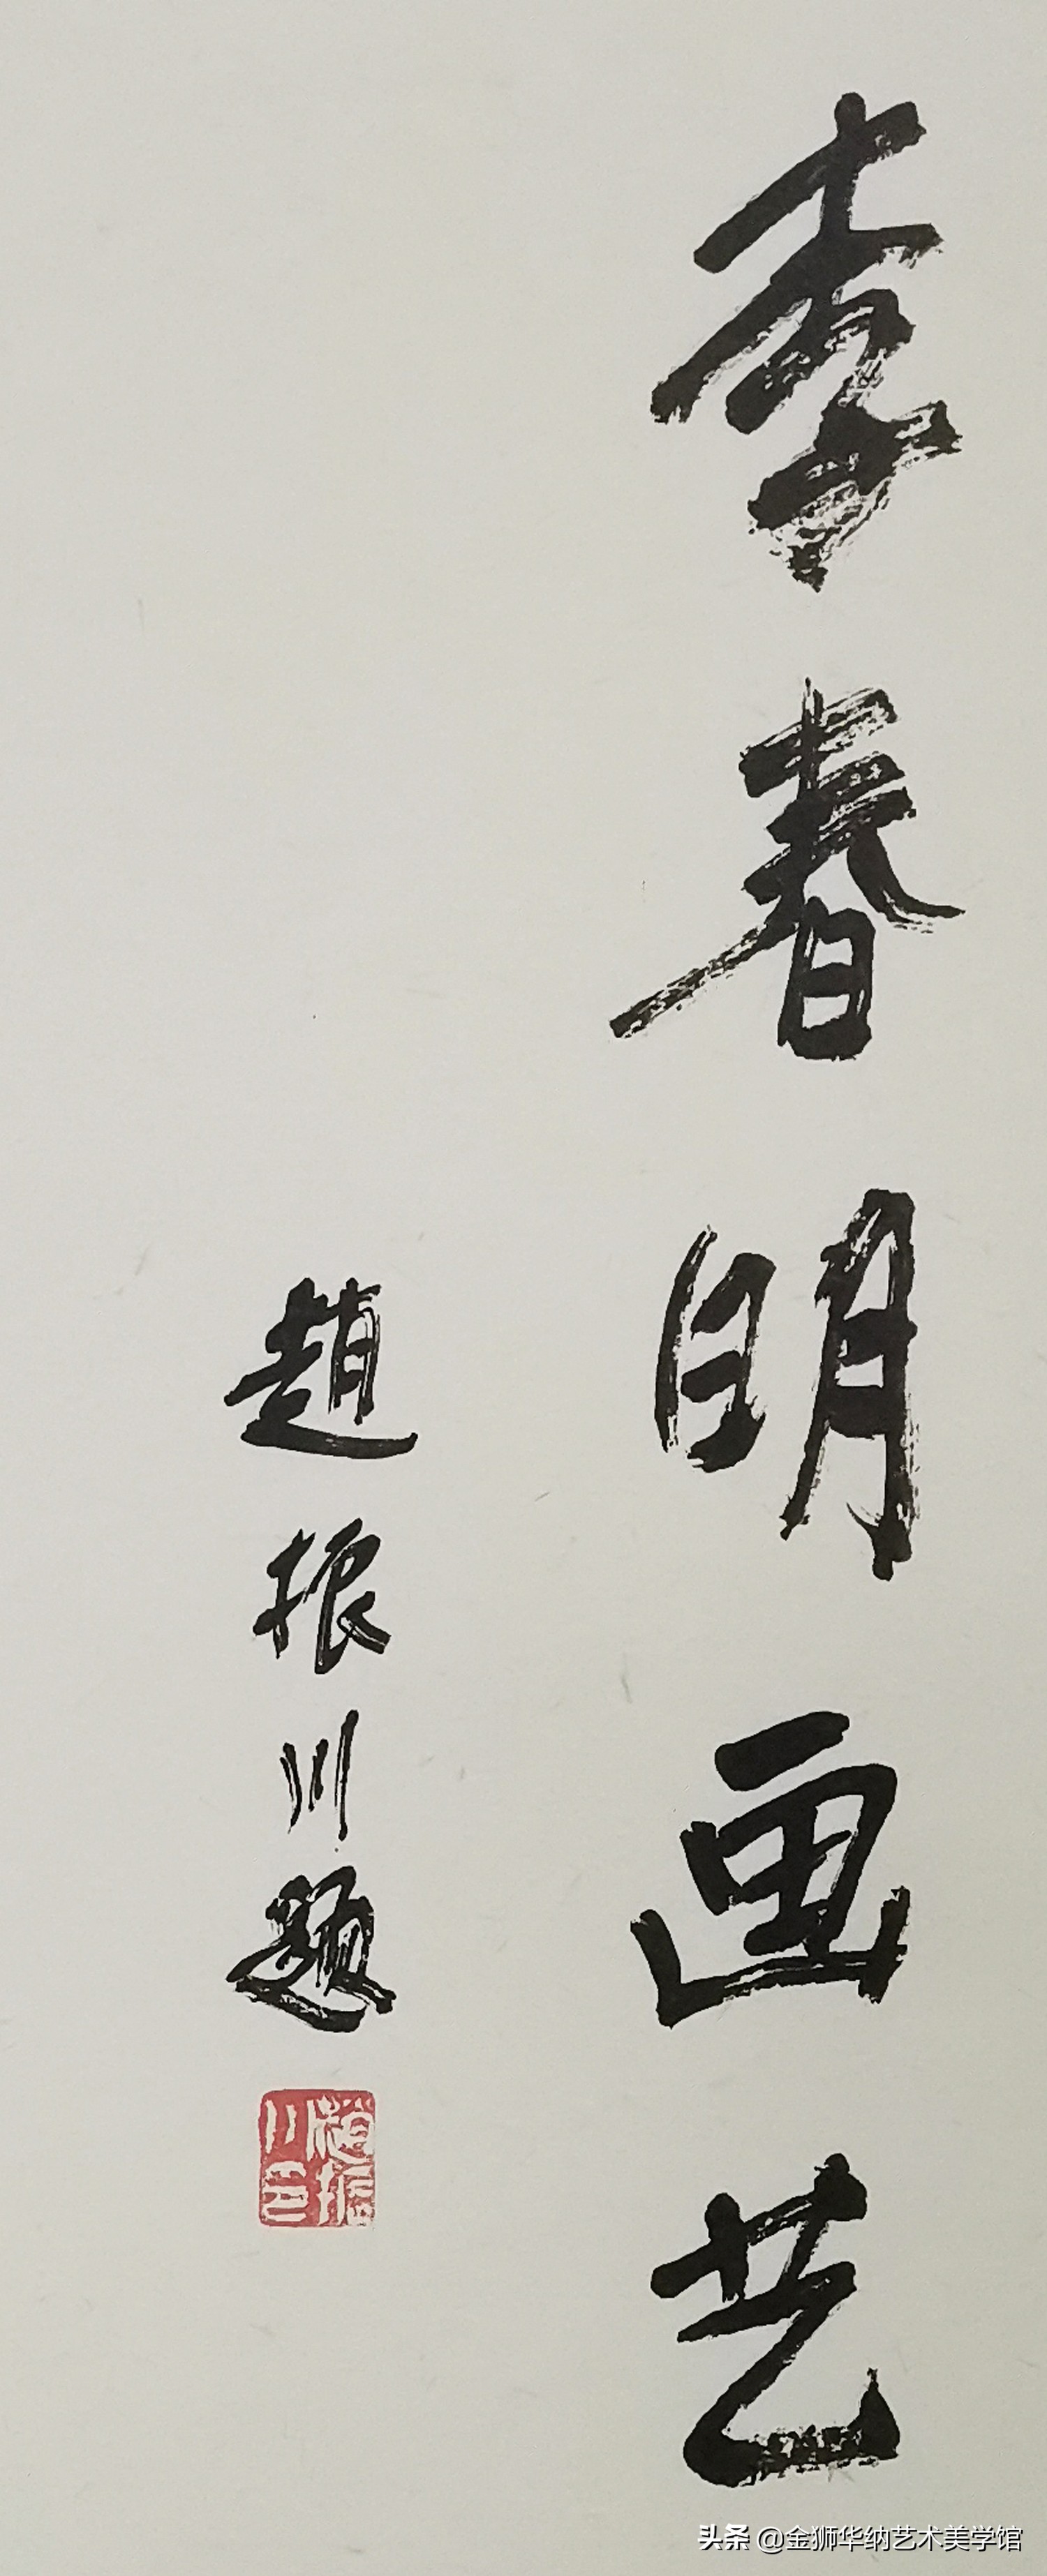 李春明画艺
趙振川题
趙振川印
头条 @金狮华纳艺术美学馆